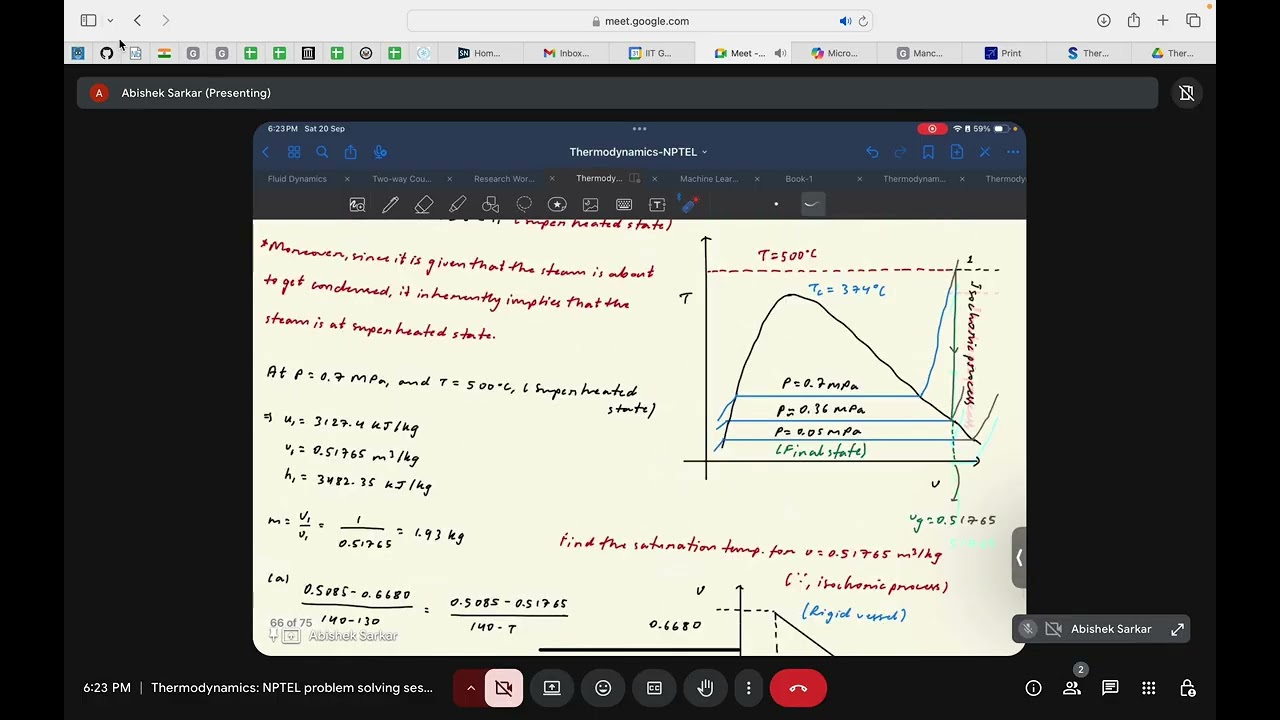 meet.google.com
Hom...
Inbox...
31 IIT G...
Meet -...
Micro...
G Manc...
Print
Ther...
Ther...
A Abishek Sarkar (Presenting)
6:23 PM Sat 20 Sep
59%
Thermodynamics-NPTEL
Fluid Dynamics
Two-way Cou...
Research Wor...
Thermody...
Machine Lear...
Book-1
Thermodynam...
Thermody
(superheated state)
*Moreover, since it is given that the steam is about
to get condensed, it inherently implies that the
steam is at superheated state.
At P = 0.7 MPa, and T = 500°C, (superheated
state)
⇒ u₁ = 3127.4 kJ/kg
v₁ = 0.51765 m³/kg
h₁ = 3482.35 kJ/kg
m = V₁/v₁ = 1/0.51765 = 1.93 kg
(a) (0.5085-0.6680)/(140-130) = (0.5085-0.51765)/(140-T)
T
T=500°C
1
Tc = 374°C
Isochoric process
P=0.7MPa
P≈0.36 MPa
P=0.05MPa
(Final state)
v
vg=0.51765
Find the saturation temp. for v=0.51765 m³/kg
(∵, isochoric process)
(Rigid vessel)
v
0.6680
66 of 75
Abishek Sarkar
Abishek Sarkar
6:23 PM | Thermodynamics: NPTEL problem solving ses...
2